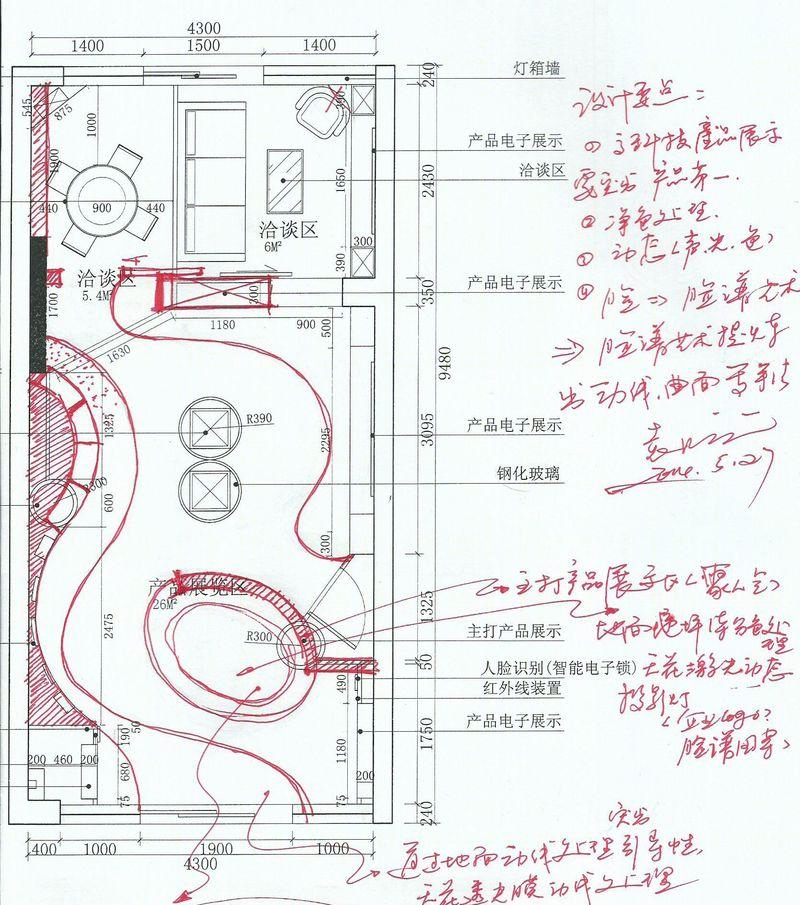 4300
1400
1500
1400
240
灯箱墙
设计要点:
545
875
1000
300
产品电子展示
① 高科技产品展示
洽谈区
要突出产品第一.
1900
440
900
440
1650
2430
② 净色处理.
洽谈区
6M²
③ 动态(声.光.色)
300
390
洽谈区
5.4M²
产品电子展示
④ 脸⇒脸谱艺术
1700
300
350
1180
900
500
⇒ 脸谱艺术提炼
1630
9480
出动线.曲面等手法
1325
R390
2295
3095
产品电子展示
钢化玻璃
5.27
R300
600
300
产品展览区
26M²
主打产品展示区
1325
2475
R300
主打产品展示
地面地坪漆分色处理
50
人脸识别(智能电子锁)
天花激光动态
490
红外线装置
投影灯
190
50
1750
产品电子展示
(企业logo?
脸谱图案)
200
460
200
680
1180
200
75
75
240
400
1000
1900
1000
4300
突出
通过地面动线处理引导性,
天花透光膜动线处理